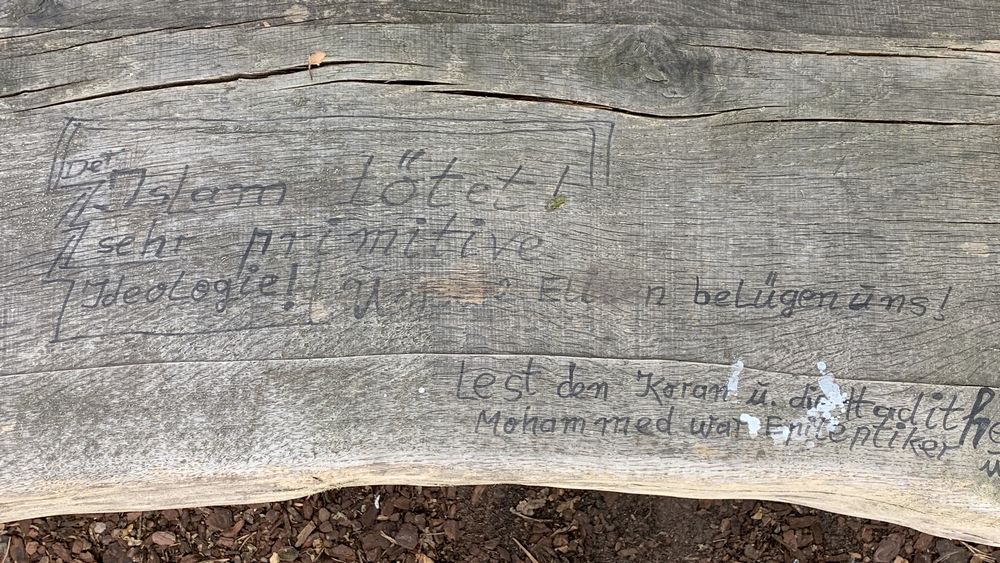 Der
Islam tötet!
sehr primitive
Ideologie! belügen uns!
Lest den Koran u. die Hadithe
Mohammed war Epileptiker
u